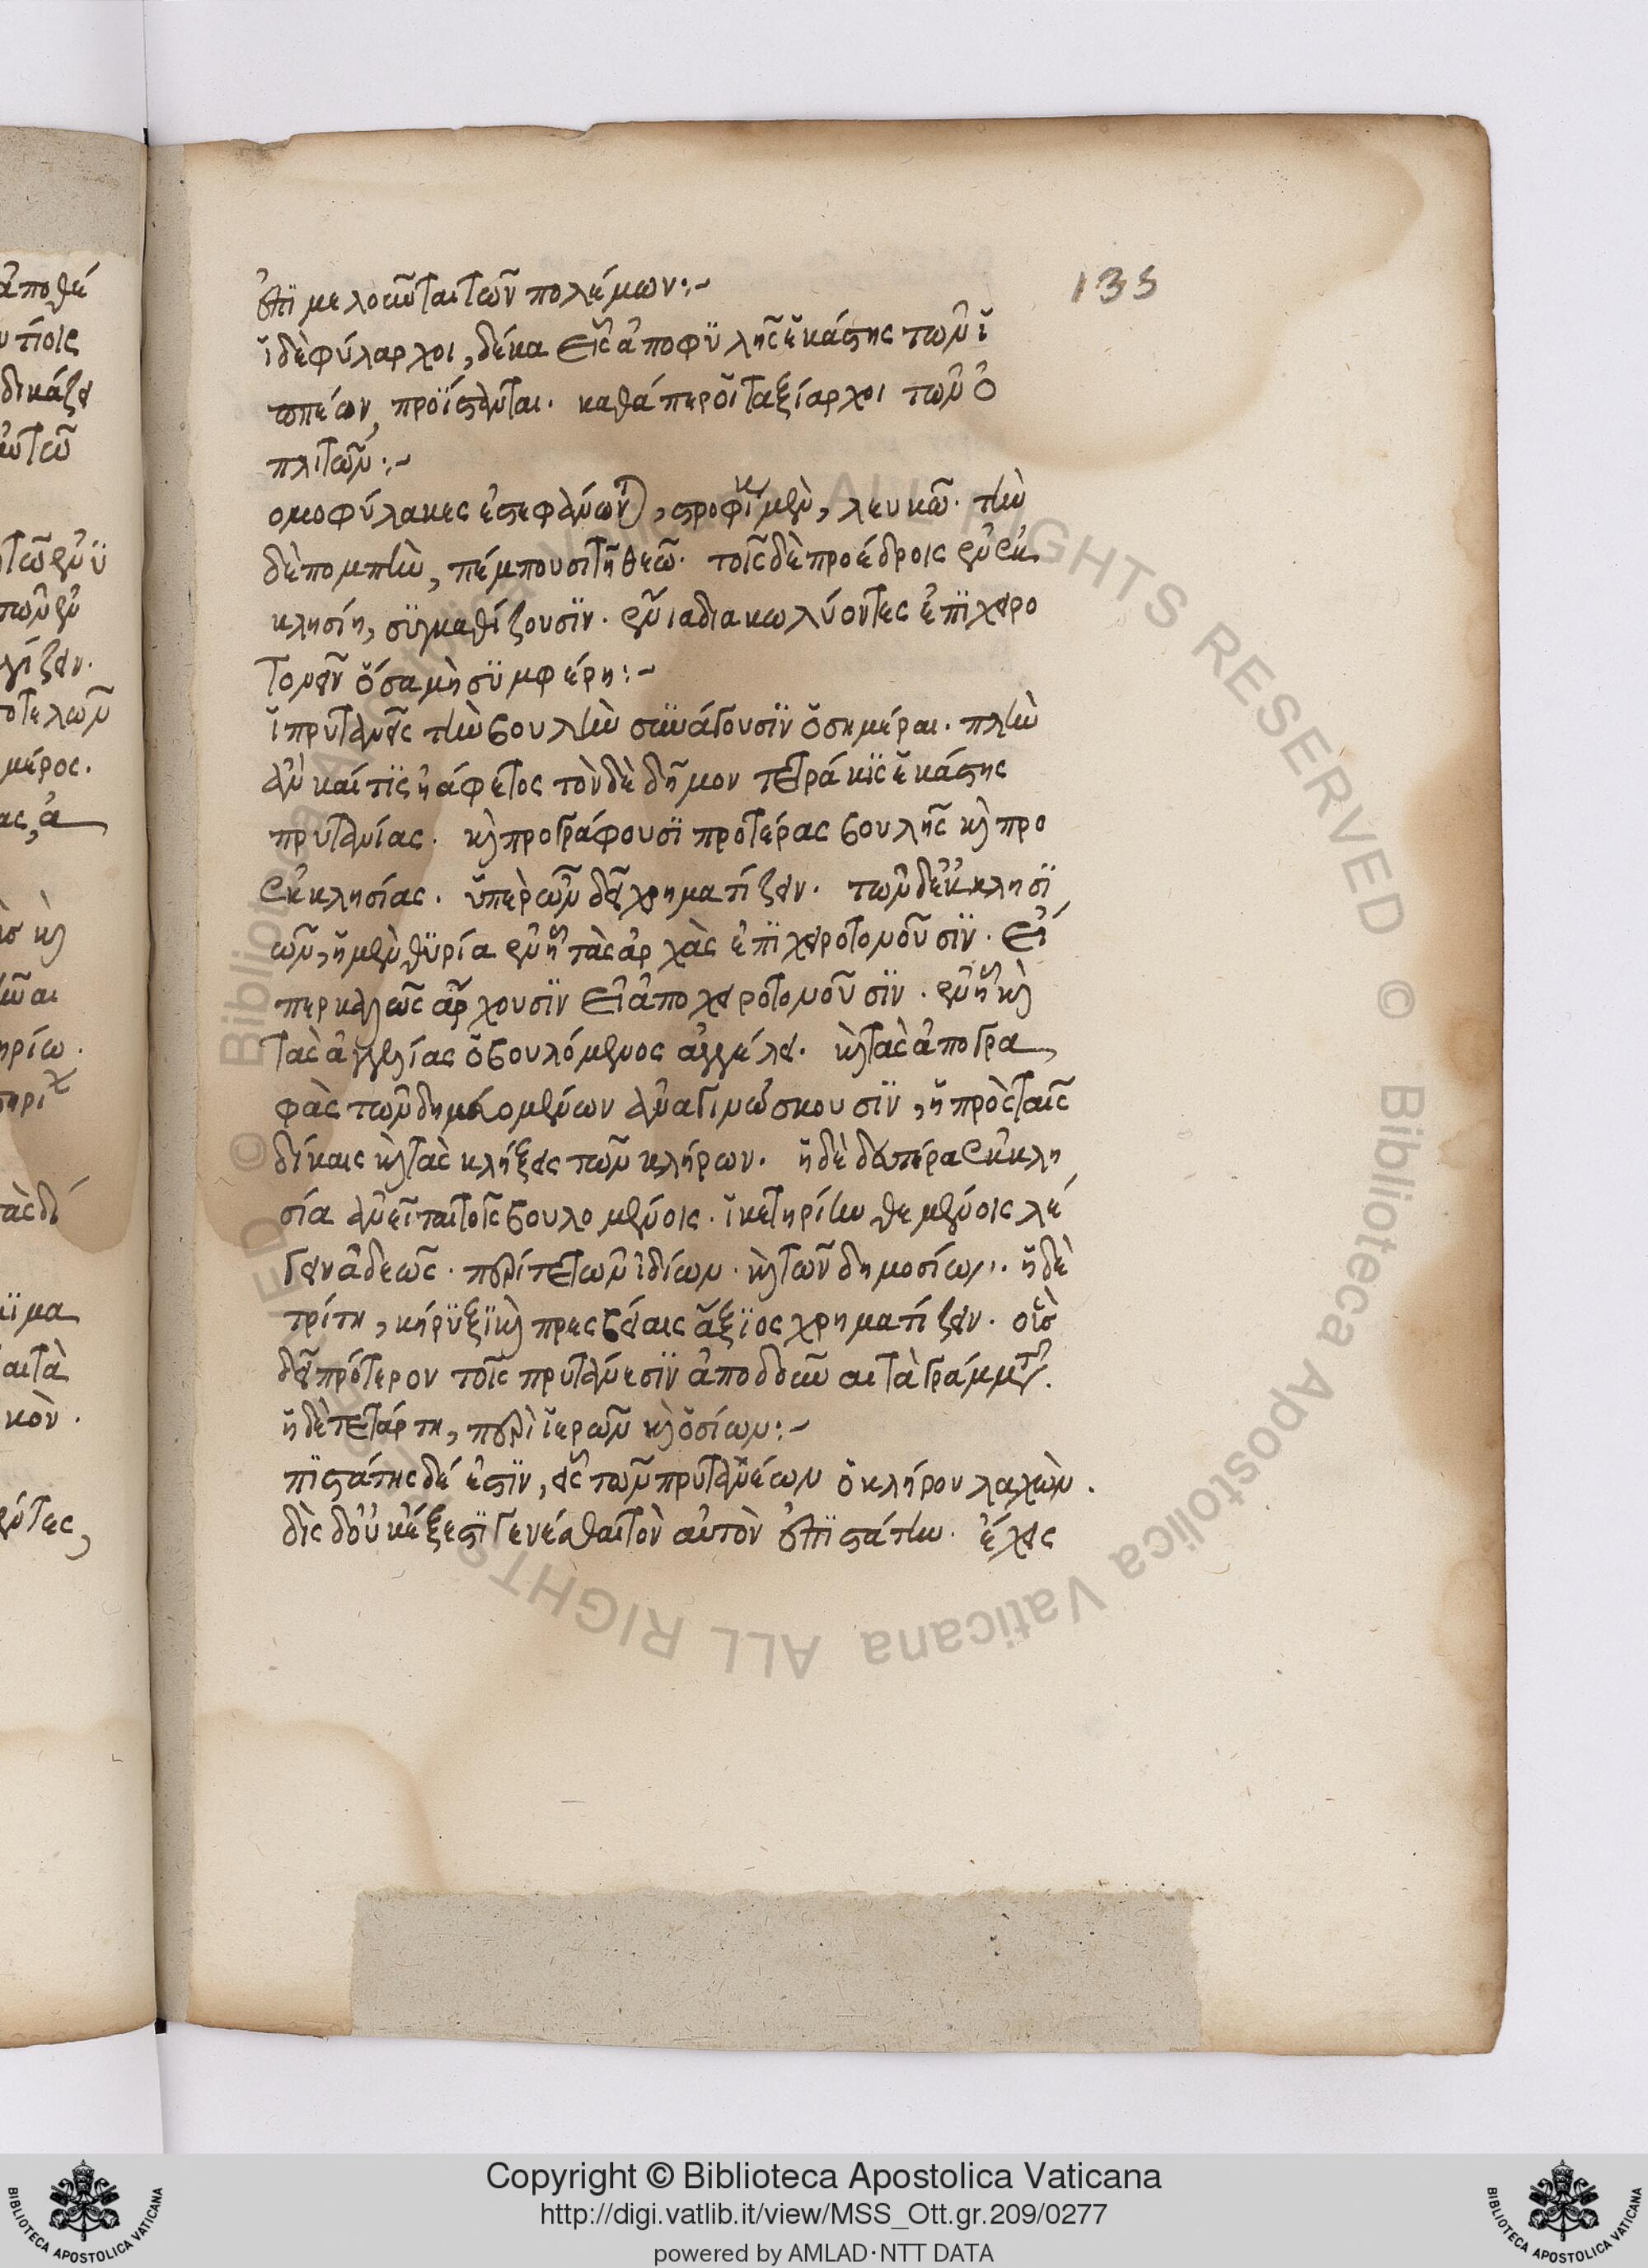 135
ἐπιμελοῦνται τῶν πολέμων:-
ἱ δὲ φύλαρχοι, δέκα εἷς ἀπὸ φυλῆς ἑκάστης τῶν ἱ
ππέων προΐστανται. καθάπερ οἱ ταξίαρχοι τῶν ὁ
πλιτῶν:-
ομοφύλακες ἐστεφάνωντο, στροφίω μὲν, λευκῶ. τὴν
δὲ πομπὴν, πέμπουσι τῆ θεῶ. τοῖς δὲ προέδροις ἐν ἐκ
κλησίη, συγκαθίζουσιν. ἔνια διακωλύοντες ἐπιχειρο
τονεῖν ὅσα μὴ συμφέρη:-
ἱ πρυτάνεις τὴν βουλὴν συνάγουσιν ὁσημέραι. πλὴν
ἂν καί τις ἠ άφετος τὸν δὲ δῆμον τετράκις ἑκάστης
πρυτανίας. καὶ προγράφουσι προτέρας βουλῆς καὶ προ
ἐκκλησίας. ὑπὲρ ὧν δεῖ χρηματίζειν. τῶν δ' ἐκκλησι
ῶν, ἡ μὲν θυρία ἐν ἧ τὰς ἀρχὰς ἐπιχειροτονοῦσιν. εἴ
περ καλῶς ἄρχουσιν εἰ ἀποχειροτονοῦσιν. ἐν ἧ καὶ
τὰς ἀγγελίας ὁ βουλόμενος ἀγγέλει. καὶ τὰς ἀπογρα
φὰς τῶν δημευομένων ἀναγινώσκουσιν, ἡ πρὸς ταῖς
δίκαις καὶ τὰς κλήξεις τῶν κλήρων. ἡ δὲ δευτέρα ἐκκλη
σία ἀνεῖται τοῖς βουλομένοις. ἱκετηρίαν θεμένοις λέ
γειν ἀδεῶς. περί τε τῶν ἰδίων. καὶ τῶν δημοσίων. ἡ δὲ
τρίτη, κήρυξι καὶ πρεσβείαις ἄξιος χρηματίζειν. οἷς
δεῖ πρότερον τοῖς πρυτάνεσιν ἀποδοῦναι τὰ γράμματα.
ἡ δὲ τετάρτη, περὶ ἱερῶν καὶ ὁσίων:-
πιστάτης δέ ἐστιν, εἷς τῶν πρυτανέων ὁ κλήρον λαχὼν.
δὶς δ' οὐκ έξεστι γενέσθαι τὸν αὐτὸν ἐπιστάτην. ἔχεις
ἀποθέ
τίοις
δικάζει
μέρος.
κὸν.
Biblioteca Apostolica Vaticana ALL RIGHTS RESERVED © Biblioteca Apostolica Vaticana ALL RIGHTS RESERVED ©
Copyright © Biblioteca Apostolica Vaticana
http://digi.vatlib.it/view/MSS_Ott.gr.209/0277
powered by AMLAD·NTT DATA
BIBLIOTECA APOSTOLICA VATICANA
BIBLIOTECA APOSTOLICA VATICANA